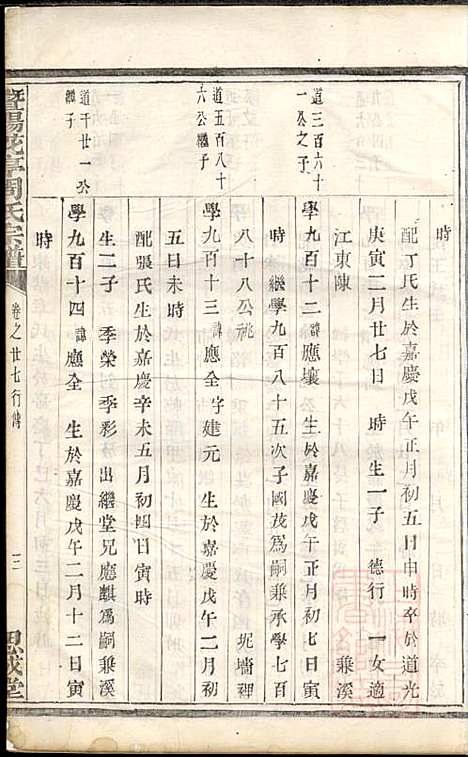 時
配丁氏生於嘉慶戊午正月初五日申時卒於道光
庚寅二月廿七日　時生一子　德行　一女適
江東陳　棄溪
道三百六十
一公之子
學九百十二諱應壤　生於嘉慶戊午正月初七日寅
時　繼學九百八十五次子國茂爲嗣兼承學七百
八十八公祧　坭墻裡
道五百八十
六公繼子
學九百十三諱應全字建元　生於嘉慶戊午二月初
五日未時
配張氏生於嘉慶辛未五月初四日寅時
生二子　季榮　季彩　出繼堂兄應麒爲嗣　棄溪
道千廿一公
繼子
學九百十四諱應全　生於嘉慶戊午二月十二日寅
時
暨陽花亭周氏宗譜
卷之廿七行傳
三
思成堂